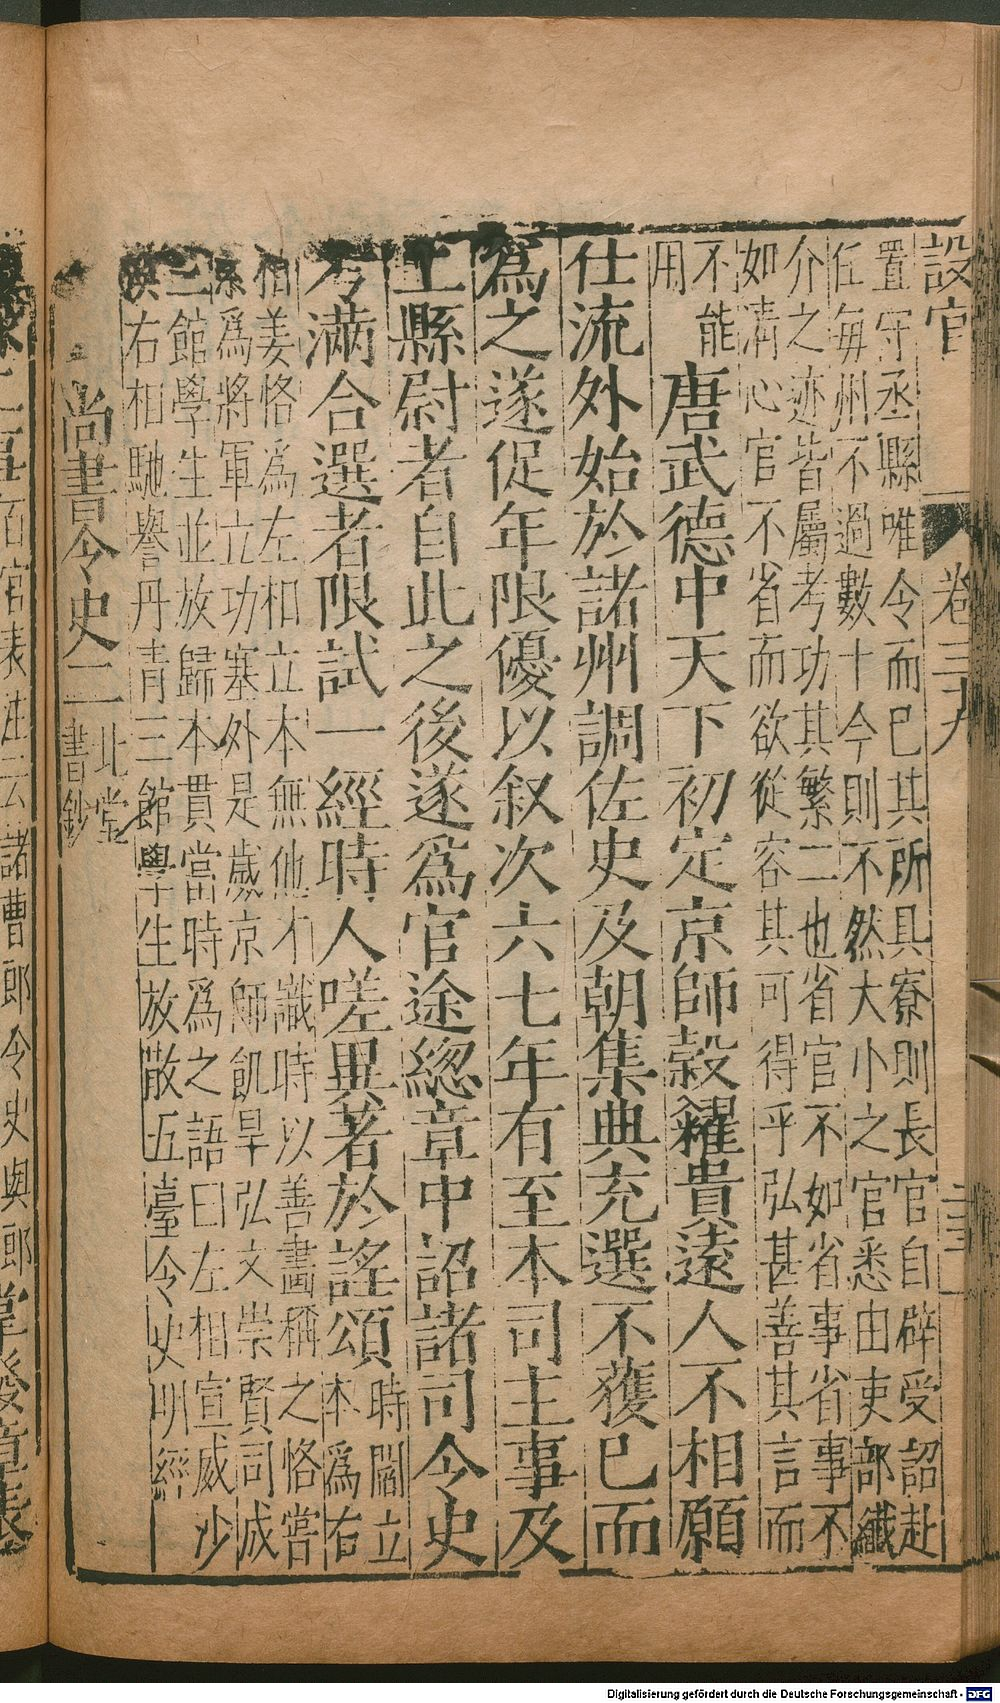 設官 卷三九 二三
置守丞縣唯令而已其所具寮則長官自辟受詔赴
任每州不過數十今則不然大小之官悉由吏部纎
介之迹皆屬考功其繁二也省官不如省事省事不
如清心官不省而欲從容其可得乎弘甚善其言而
不能
用
唐武德中天下初定京師穀糴貴遠人不相願
仕流外始於諸州調佐史及朝集典充選不獲已而
爲之遂促年限優以叙次六七年有至本司主事及
上縣尉者自此之後遂爲官途緫章中詔諸司令史
考滿合選者限試一經時人嗟異著於謠頌
時閻立
本爲右
相姜恪爲左相立本無他才識時以善畫稱之恪嘗
累爲將軍立功塞外是歲京師飢旱弘文崇賢司成
三館學生並放歸本貫當時爲之語曰左相宣威沙
漠右相馳譽丹青三館學生放散五臺令史明經
尚書令史二
北堂
書鈔
百官表注云諸曹郎令史與郎
掌
Digitalisierung gefördert durch die Deutsche Forschungsgemeinschaft - DFG